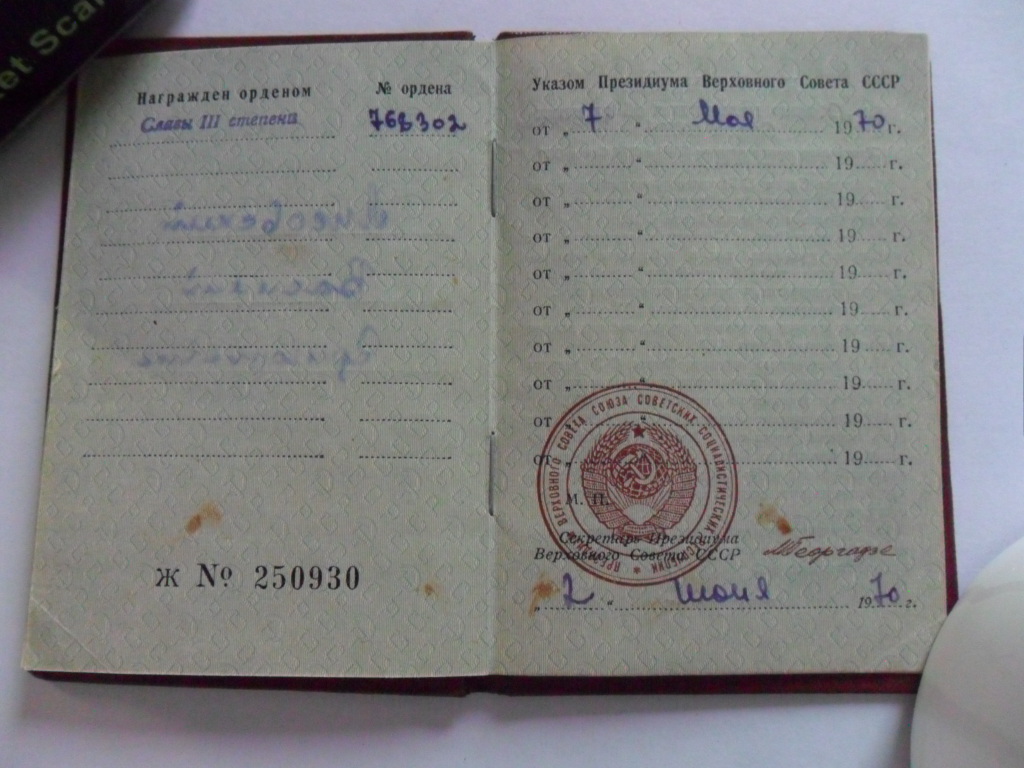 et Sca
Награжден орденом № ордена
Славы III степени 768302
Ж № 250930
Указом Президиума Верховного Совета СССР
от „ 7 “ Мая 1970 г.
от „ “ 19 г.
от „ “ 19 г.
от „ “ 19 г.
от „ “ 19 г.
от „ “ 19 г.
от „ “ 19 г.
от „ “ 19 г.
от „ “ 19 г.
от „ “ 19 г.
М. П.
Секретарь Президиума
Верховного Совета СССР МГеоргадзе
„ 2 “ июня 1970 г.
ПРЕЗИДИУМ ВЕРХОВНОГО СОВЕТА СОЮЗА СОВЕТСКИХ СОЦИАЛИСТИЧЕСКИХ РЕСПУБЛИК